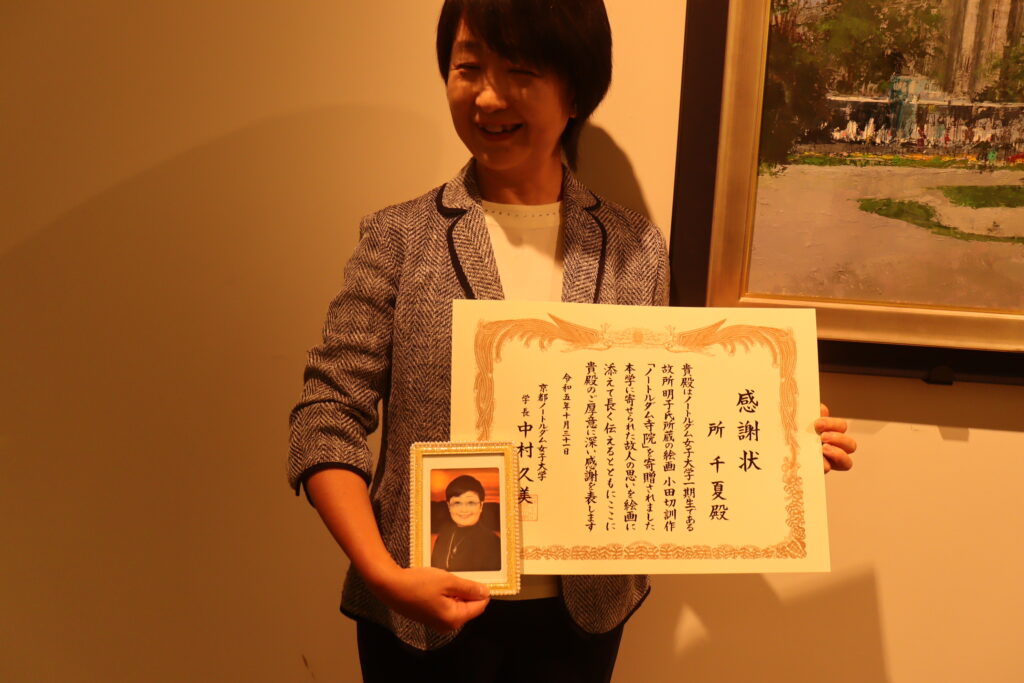 感謝状
所 千夏殿
貴殿はノートルダム女子大学一期生である
故所明子氏所蔵の絵画 小田切訓作
「ノートルダム寺院」を寄贈されました
本学に寄せられた故人の思いを絵画に
添えて長く伝えるとともにここに
貴殿のご厚意に深い感謝を表します
令和五年十月三十一日
京都ノートルダム女子大学
学長 中村久美